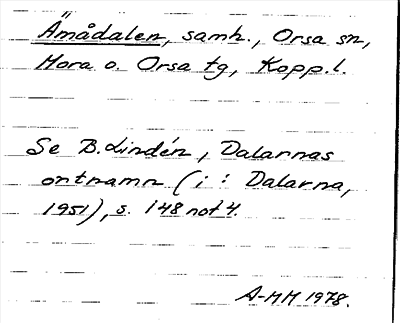 Åmådalen, samh., Orsa sn,
Mora o. Orsa tg, Kopp.l.
Se B. Lindén, Dalarnas
ortnamn (i: Dalarna,
1951), s. 148 not 4.
A-MM 1978.